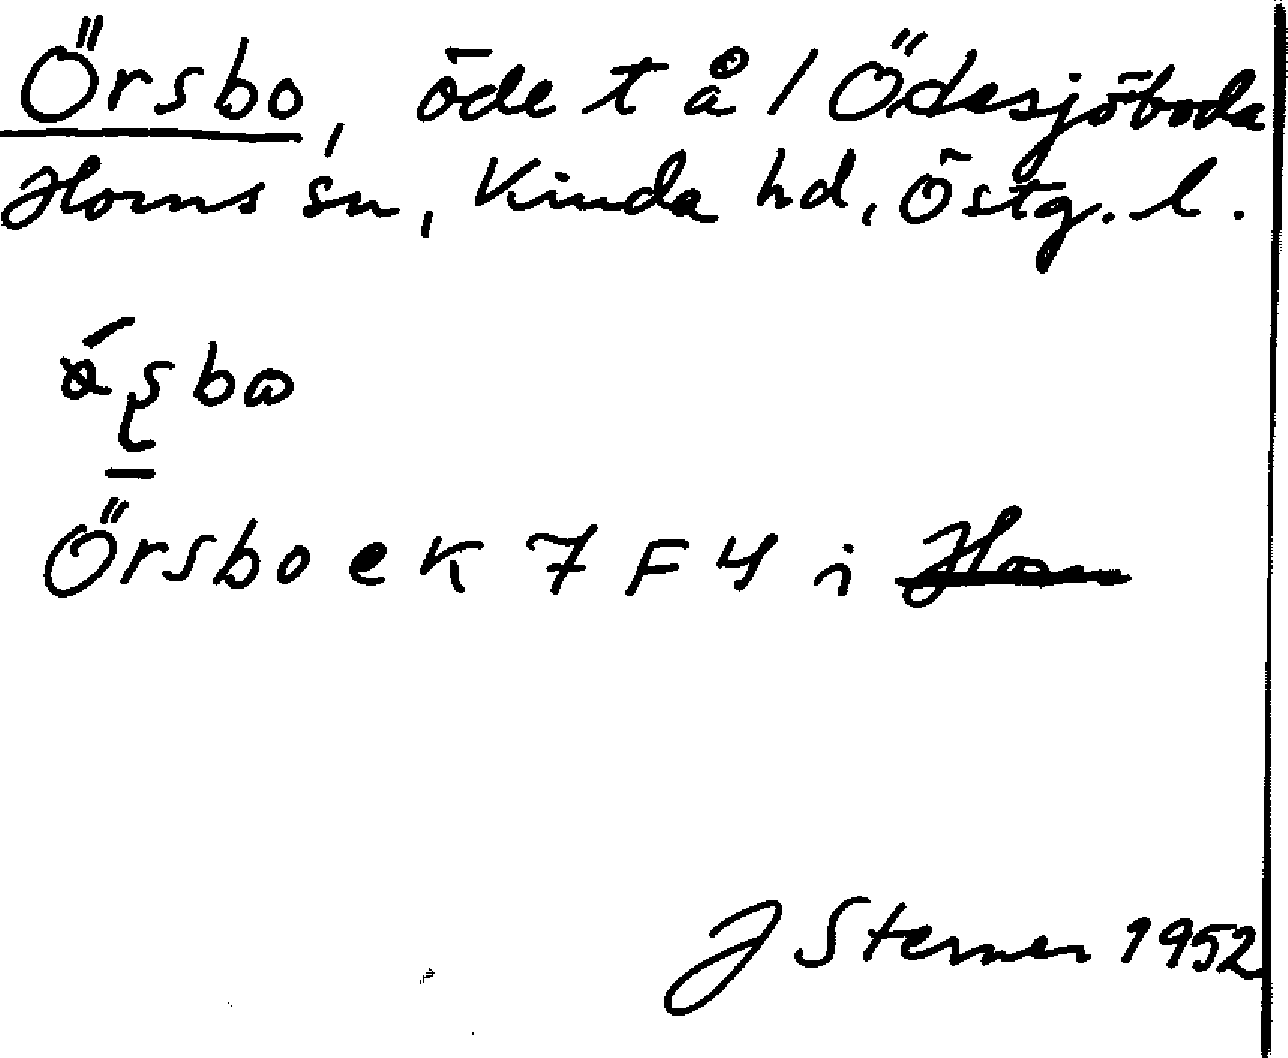 Örsbo, öde t å / Ödesjöboda
Horns sn, Kinda hd, Östg. l.
Örsbo ek 7 F 4 i Horn
J Sterner 1952